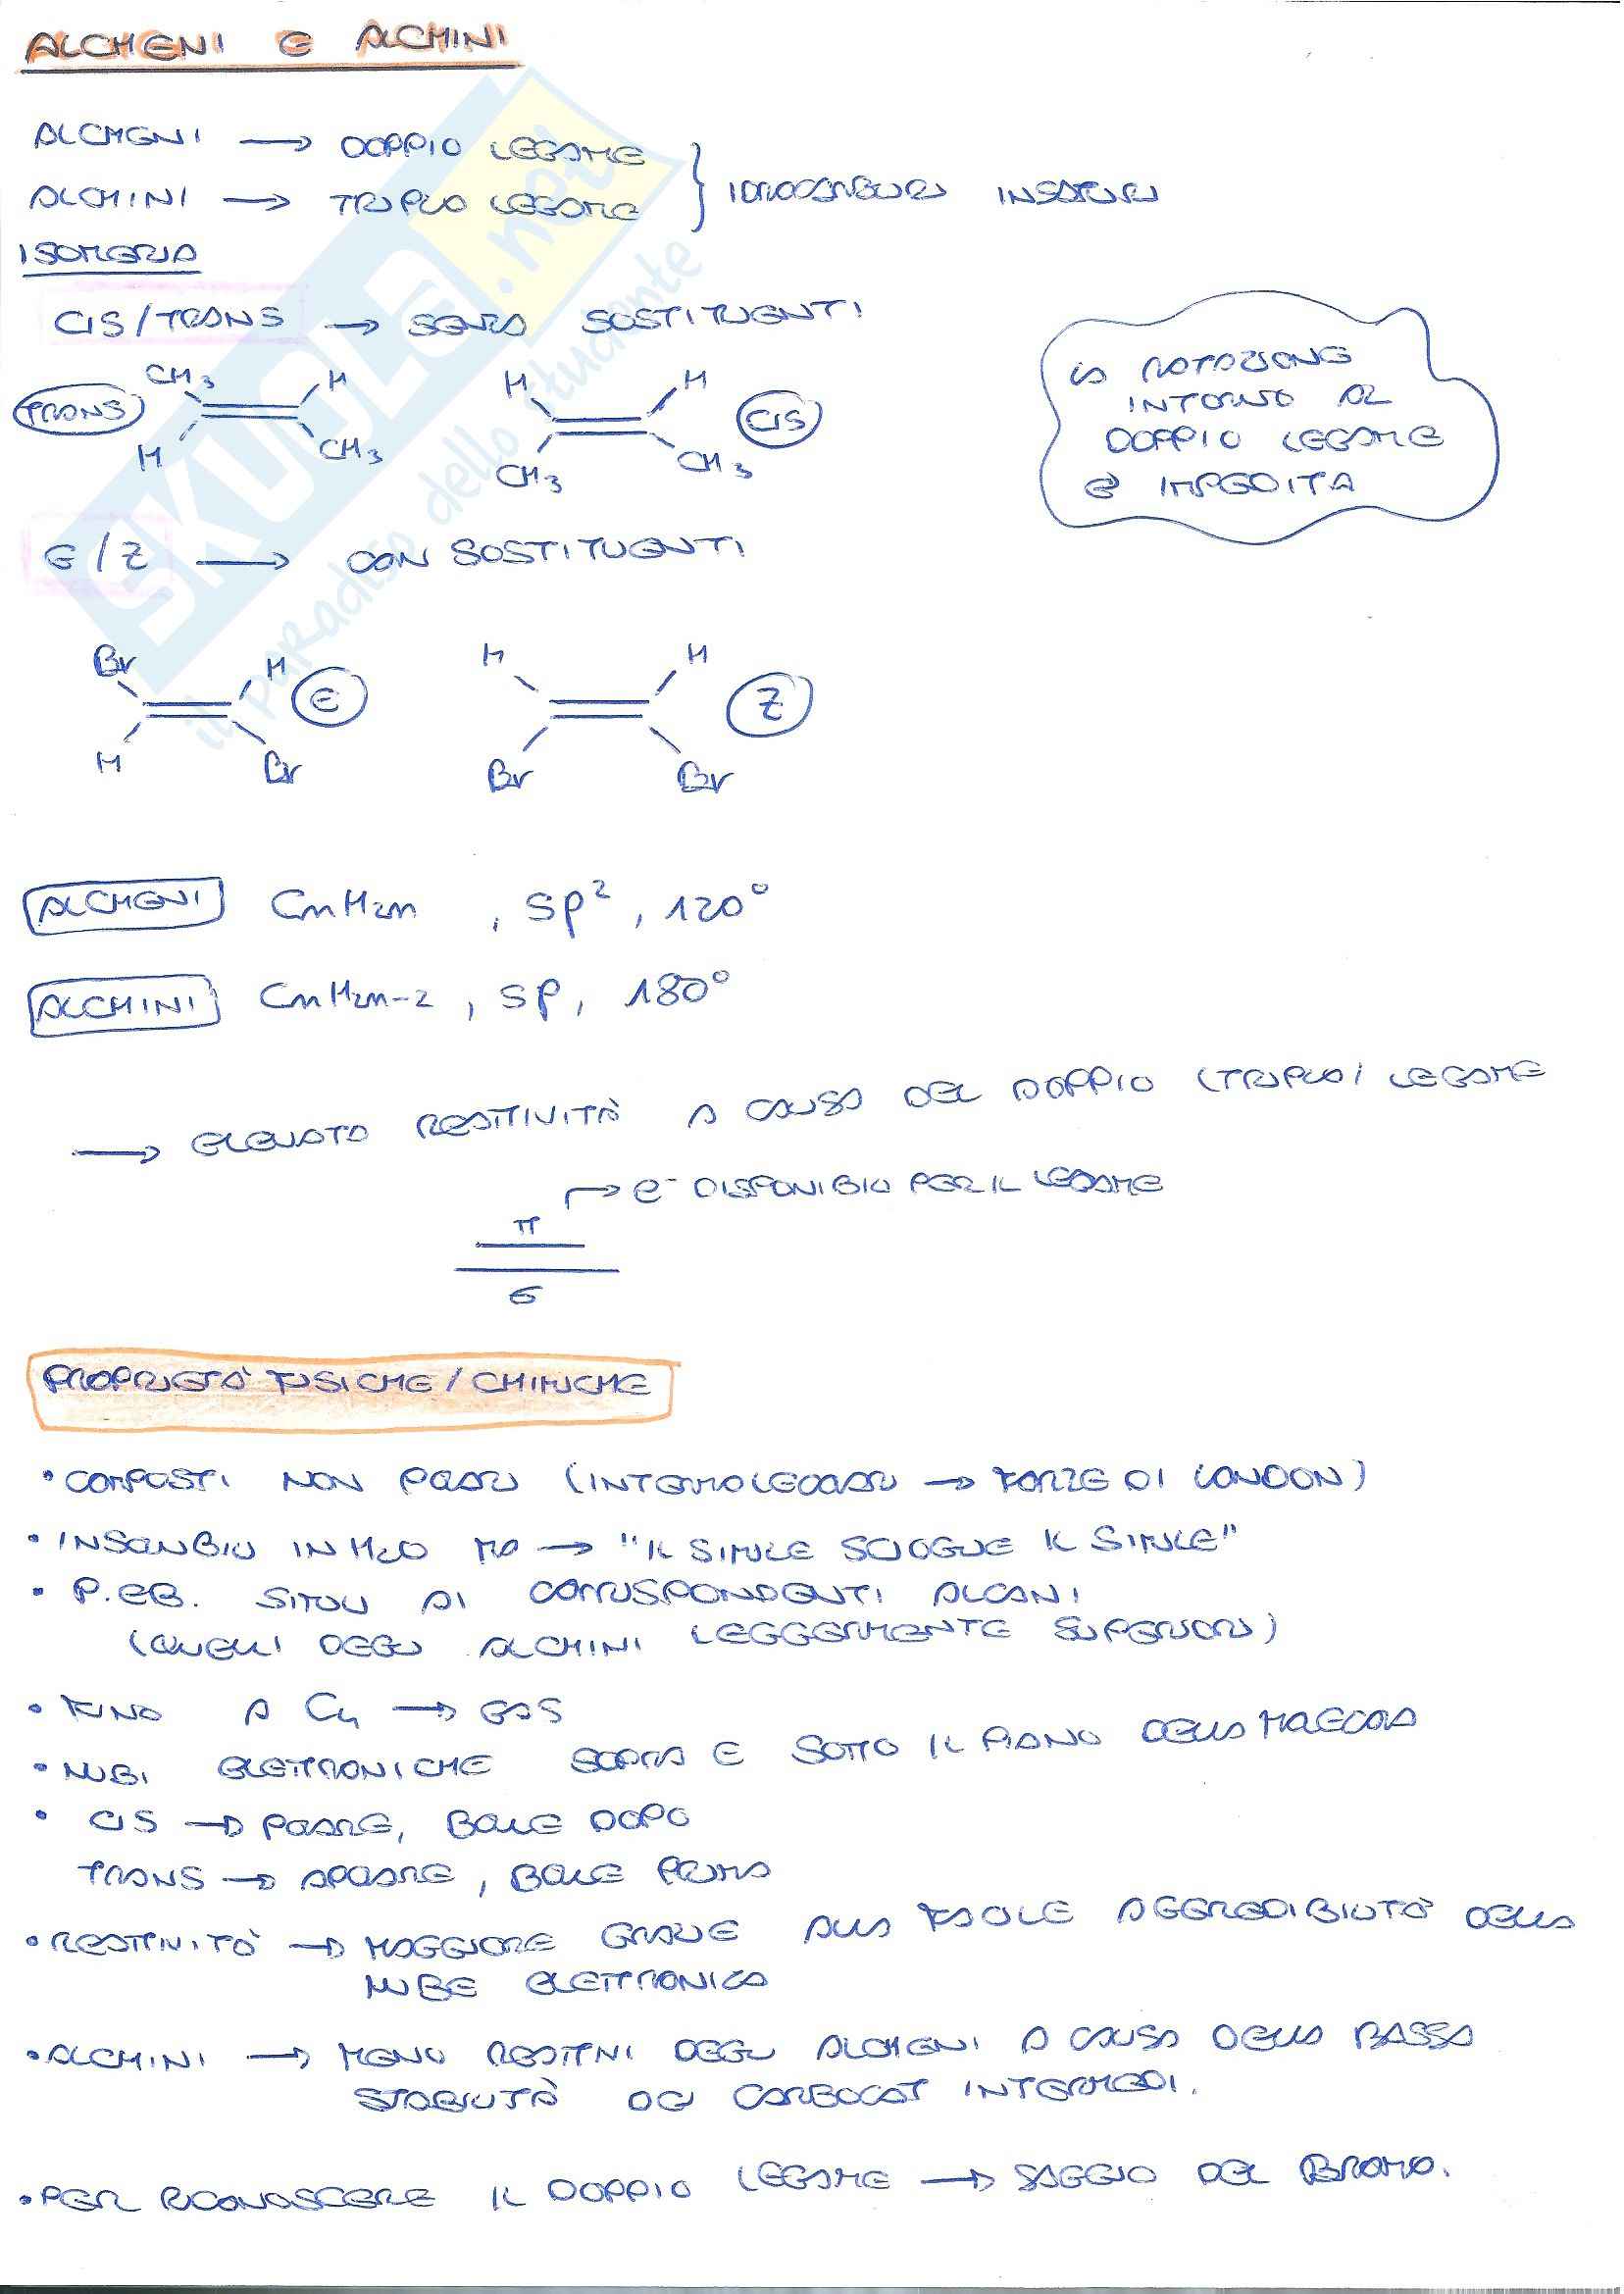 ALCHENI E ALCHINI
ALCHENI → DOPPIO LEGAME
ALCHINI → TRIPLO LEGAME } IDROCARBURI INSATURI
ISOMERIA
CIS/TRANS → SENZA SOSTITUENTI
TRANS CH3 H H CH3
H H CIS CH3 CH3
LA ROTAZIONE
INTORNO AL
DOPPIO LEGAME
È IMPEDITA
E/Z → CON SOSTITUENTI
Br H E H Br
H H Z Br Br
ALCHENI CnH2n , SP², 120°
ALCHINI CnH2n-2 , SP, 180°
→ ELEVATA REATTIVITÀ A CAUSA DEL DOPPIO (TRIPLO) LEGAME
→ e⁻ DISPONIBILI PER IL LEGAME
π
σ
PROPRIETÀ FISICHE/CHIMICHE
• COMPOSTI NON POLARI (INTERMOLECOLARI → FORZE DI LONDON)
• INSOLUBILI IN H2O MA → "IL SIMILE SCIOGLIE IL SIMILE"
• P. EB. SIMILI AI CORRISPONDENTI ALCANI
(QUELLI DEGLI ALCHINI LEGGERMENTE SUPERIORI)
• FINO A C4 → GAS
• NUBI ELETTRONICHE SOPRA E SOTTO IL PIANO DELLA MOLECOLA
• CIS → POLARE, BOLLE DOPO
TRANS → APOLARE, BOLLE PRIMA
• REATTIVITÀ → MAGGIORE GRAZIE ALLA FACILE AGGREDIBILITÀ DELLA
NUBE ELETTRONICA
• ALCHINI → MENO REATTIVI DEGLI ALCHENI A CAUSA DELLA BASSA
STABILITÀ DEI CARBOCAT INTERMEDI.
• PER RICONOSCERE IL DOPPIO LEGAME → SAGGIO DEL BROMO.
SKUOLA.net
il paradiso dello studente